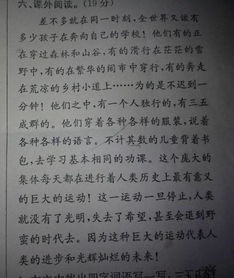 六、课外阅读。(19分)
差不多就在同一时刻,全世界又该有
多少孩子在奔向自己的学校!他们有的正
在穿过森林和山谷,有的滑行在茫茫的雪
野中,有的在繁华的闹市中穿行,有的奔走
在荒凉的乡村小道上……为的是不迟到一
分钟!他们之中,有一个人独行的,有三五
成群的。他们穿着各种各样的服装,说着
各种各样的语言。不计其数的儿童背着书
包,去学习基本相同的功课。这个庞大的
集体每天都在进行着人类历史上最有意义
的巨大的运动!这一运动一旦停止,人类
就没有了光明,失去了希望,甚至会退到野
蛮的时代去。因为这种巨大的运动代表人
类的进步和光辉灿烂的未来!